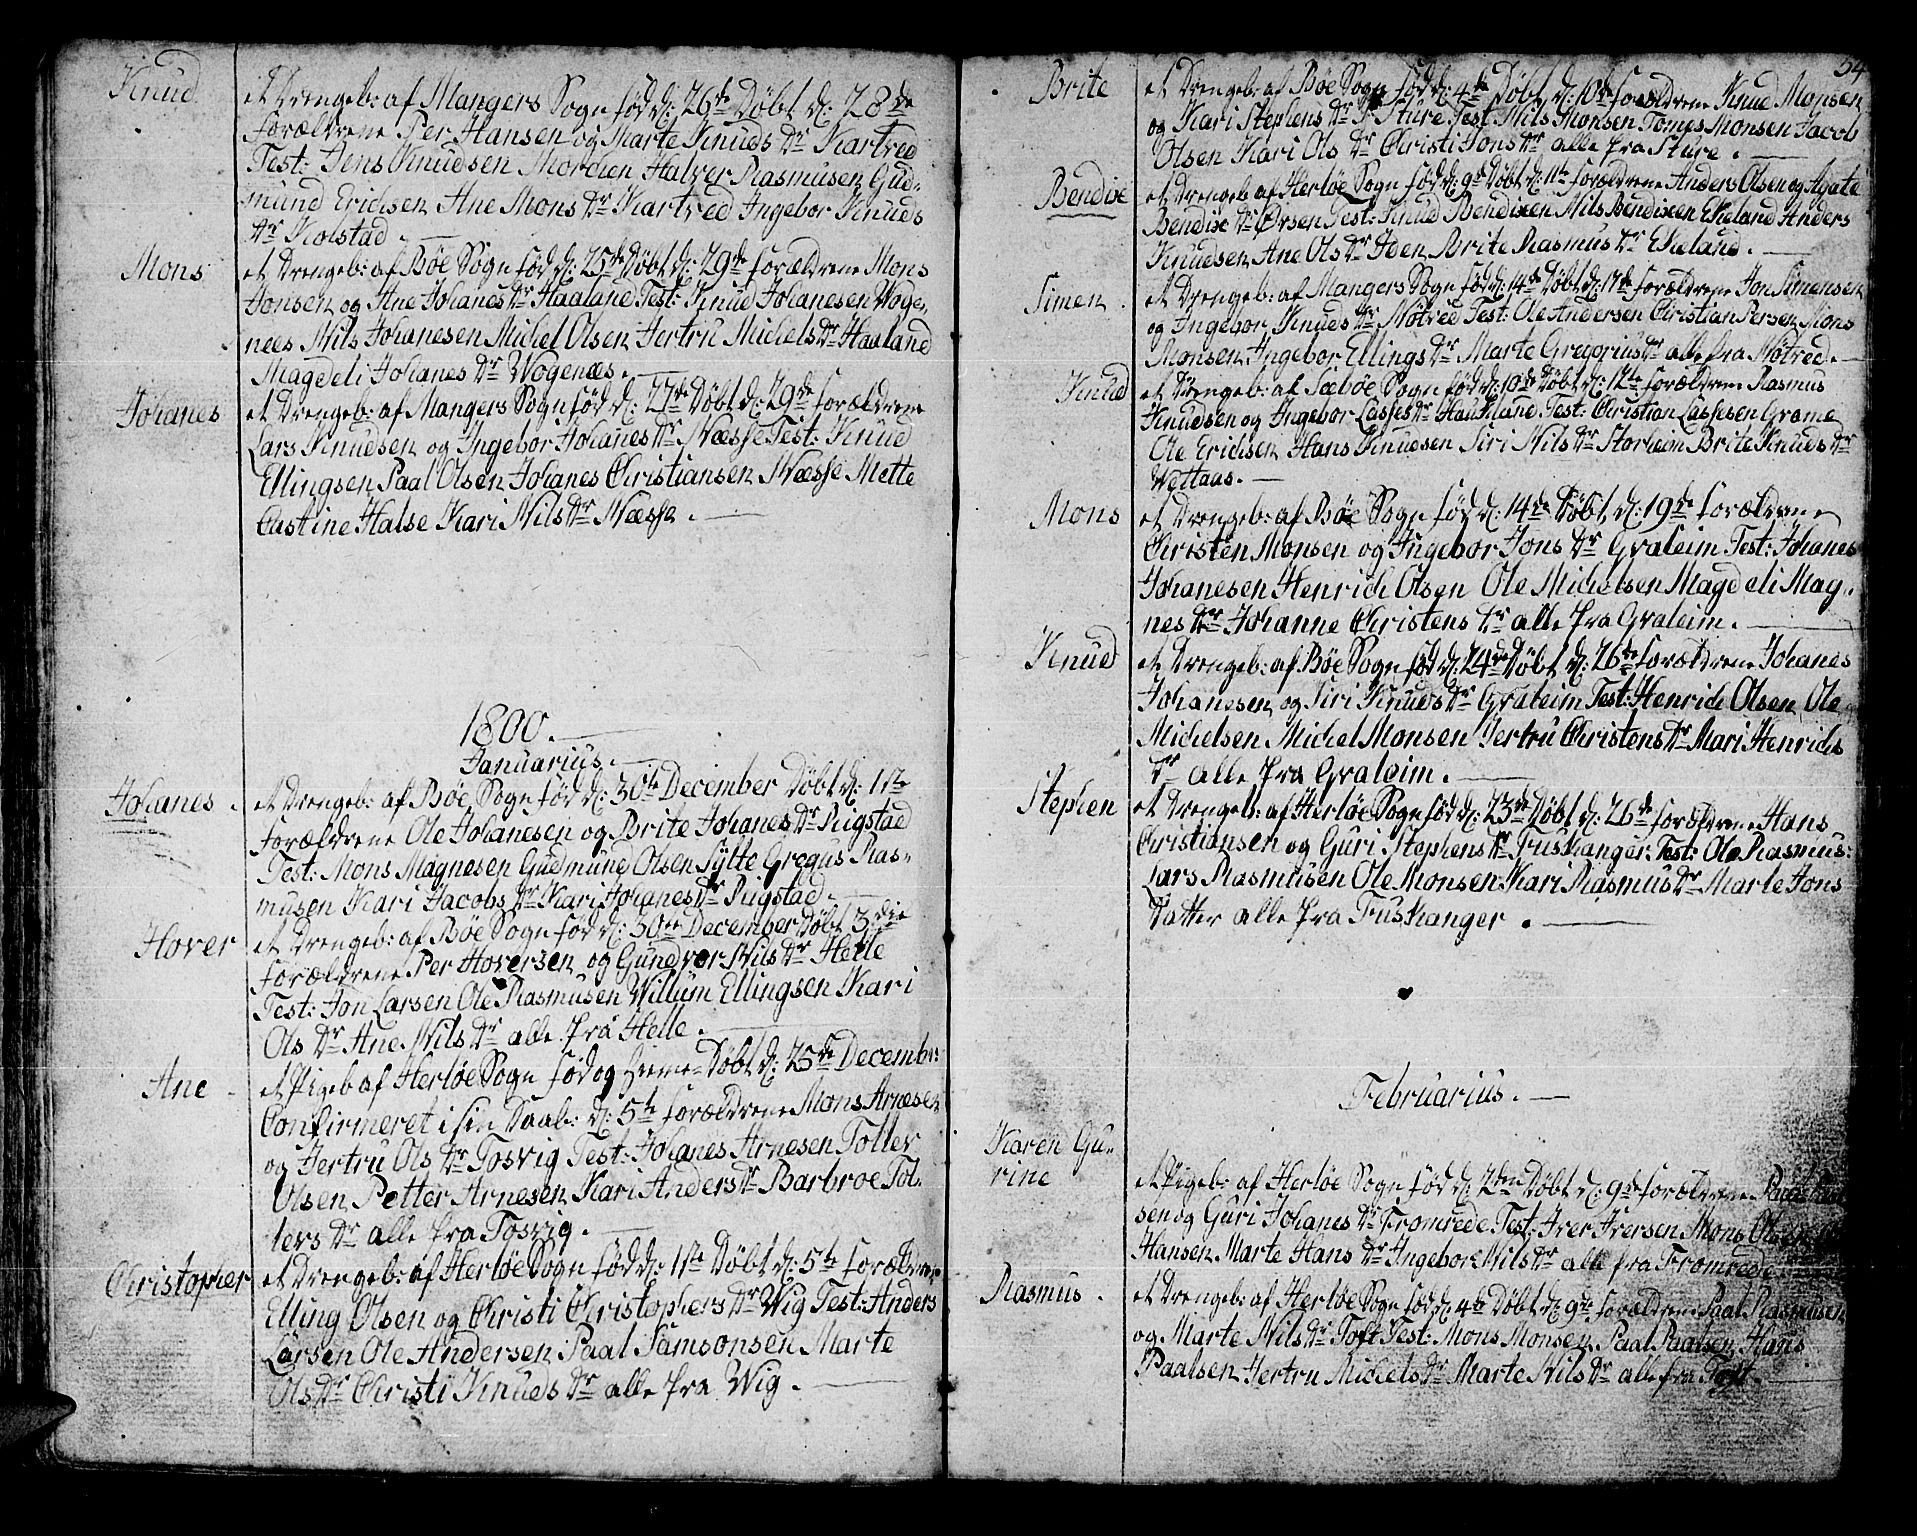 Knud et Drengeb: af Mangers Sogn fød d: 26de Døbt d: 28de
forældrene Per Hansen og Marte Knuds Dr Kartved
Test: Jens Knudsen Morchen Halver Rasmusen Gud-
mund Erichsen Ane Mons Dr Kartved Ingebor Knuds
Dr Kolstad.
Mons et Drengeb: af Bøe Sogn fød d: 25de Døbt d: 29de forældrene Mons
Jonsen og Ane Johanes Dr Haaland Test: Knud Johanesen Woge-
nees Nils Johanesen Michel Olsen Jertru Michels Dr Haaland
Magdeli Johanes Dr Wogenæs.
Johanes et Drengeb: af Mangers Sogn fød d: 27de Døbt d: 29de forældrene
Lars Knudsen og Ingebor Johanes Dr Næsse Test: Knud
Ellingsen Paal Olsen Johanes Christiansen Næsse Mette
Castine Halse Kari Nils Dr Næsse.
1800.
Januarius.
Johanes. et Drengeb: af Bøe Sogn fød d: 30te December Døbt d: 1ste
forældrene Ole Johanesen og Brite Johanes Dr Rigstad
Test: Mons Magnesen Gudmund Olsen Sylte Gregus Ras-
musen Kari Jacobs Dr Kari Johanes Dr Rigstad.
Hover et Drengeb: af Bøe Sogn fød d: 30te December Døbt 3die
forældrene Per Hoversen og Gundvor Nils Dr Helle
Test: Jon Larsen Ole Rasmusen Willum Ellingsen Kari
Ols Dr Ane Nils Dr alle fra Helle.
Ane et Pigeb af Herløe Sogn fød og hieme-Døbt d: 25de Decembr:
Confirmeret i sin Daab: d: 5te forældrene Mons Arnesen
og Jertru Ols Dr Tosvig Test: Johanes Arnesen Tollev
Olsen Petter Arnesen Kari Anders Dr Barbroe Tol-
levs Dr alle fra Tosvig.
Christopher et Drengeb: af Herløe Sogn fød d: 1ste Døbt d: 5te forældrene
Elling Olsen og Christi Christophers Dr Wig Test: Anders
Larsen Ole Andersen Paal Samsonsen Marte
Ols Dr Christi Knuds Dr alle fra Wig.
54
Brite et Drengeb: af Bøe Sogn fød d: 4de Døbt d: 10de forældrene Knud Monsen
og Kari Stephens Dr Sture Test Nils Monsen Tomes Monsen Jacob
Olsen Kari Ols Dr Christi Jons Dr alle fra Sture.
Bendix et Drengeb af Herløe Sogn fød d: 9de Døbt d: 11te forældrene Anders Olsen og Agate
Bendix Dr Ørsen Test: Knud Bendixen Nils Bendixen Ekeland Anders
Knudsen Ane Ols Dr Iden Brite Rasmus Dr Ekeland.
Simen et Drengeb: af Mangers Sogn fød d: 14de Døbt d: 17de forældrene Jon Simensen
og Ingebor Knuds Dr Nøtved Test: Ole Andersen Christian Persen Mons
Monsen Ingebor Ellings Dr Marte Gregorius Dr alle fra Nøtved.
Knud et Drengeb: af Sæbøe Sogn fød d: 10de Døbt d: 12te forældrene Rasmus
Knudsen og Ingebor Lasses Dr Haukland Test: Christian Lassesen Grame
Ole Erichsen Hans Knudsen Siri Nils Dr Storheim Brite Knuds Dr
Wettaas.
Mons et Drengeb: af Bøe Sogn fød d: 14de Døbt d: 19de forældrene
Christen Monsen og Ingebor Jons Dr Gvaleim Test: Johanes
Johanesen Henrich Olsen Ole Michelsen Magdeli Mag-
nes Dr Johanne Christens Dr alle fra Gvaleim.
Knud et Drengeb: af Bøe Sogn fød d: 24de Døbt d: 26de forældrene Johanes
Johanesen og Siri Knuds Dr Gvaleim Test: Henrich Olsen Ole
Michelsen Michel Monsen Jertru Christens Dr Mari Henrichs
Dr alle fra Gvaleim.
Stephen et Drengeb: af Herløe Sogn fød d: 23de Døbt d: 26de forældrene Hans
Christiansen og Guri Stephens Dr Fuskanger: Test: Ole Rasmus:
Lars Rasmusen Ole Monsen Kari Rasmus Dr Marte Jons
Datter alle fra Fuskanger.
Februarius.
Karen Gu-
rine et Pigeb: af Herløe Sogn fød d: 2den Døbt d: 9de forældrene Paal
sen og Guri Johanes Dr Fromrede Test: Iver Iversen Mons Olsen
Hansen Marte Hans Dr Ingebor Nils Dr alle fra Fromrede
Rasmus. et Drengeb: af Herløe Sogn fød d: 4de Døbt d: 9de forældrene Paal Rasmusen
og Marte Nils Dr Toft Test: Mons Monsen Paal Paalsen Hans
Paalsen Jertru Michels Dr Marte Nils Dr alle fra Toft.